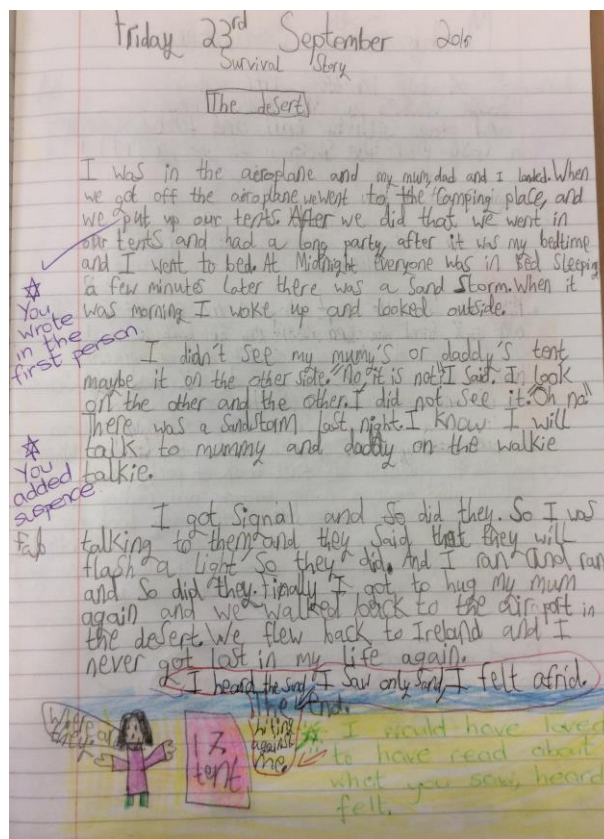 Friday 23rd September 2016
Survival Story
The desert
I was in the aeroplane and my mum, dad and I landed. When
we got off the airoplane we went to the Camping place, and
we put up our tents. After we did that we went in
our tents and had a long party, after it was my bedtime
and I went to bed. At Midnight everyone was in Bed Sleeping
a few minutes later there was a Sand Storm. When it
was morning I woke up and looked outside.
You
wrote
in the
first person
I didn't see my mumy's or daddy's tent
maybe it on the other side. "No, it is not" I said. I look
on the other and the other. I did not see it. "Oh no"
There was a Sandstorm last night. I know I will
talk to mummy and daddy on the walkie
talkie.
You
added
suspence
I got Signal and So did they. So I was
talking to them and they said that they will
flash a light So they did. And I ran and ran
and So did they. finally I got to hug my mum
again and we walked back to the airport in
the desert. We flew back to Ireland and I
never got lost in my life again.
fab
I heard the sand I saw only sand I felt afrid.
The End.
hiting
against
me.
Where
are
they?
tent
I would have loved
to have read about
what you saw, heard
felt.